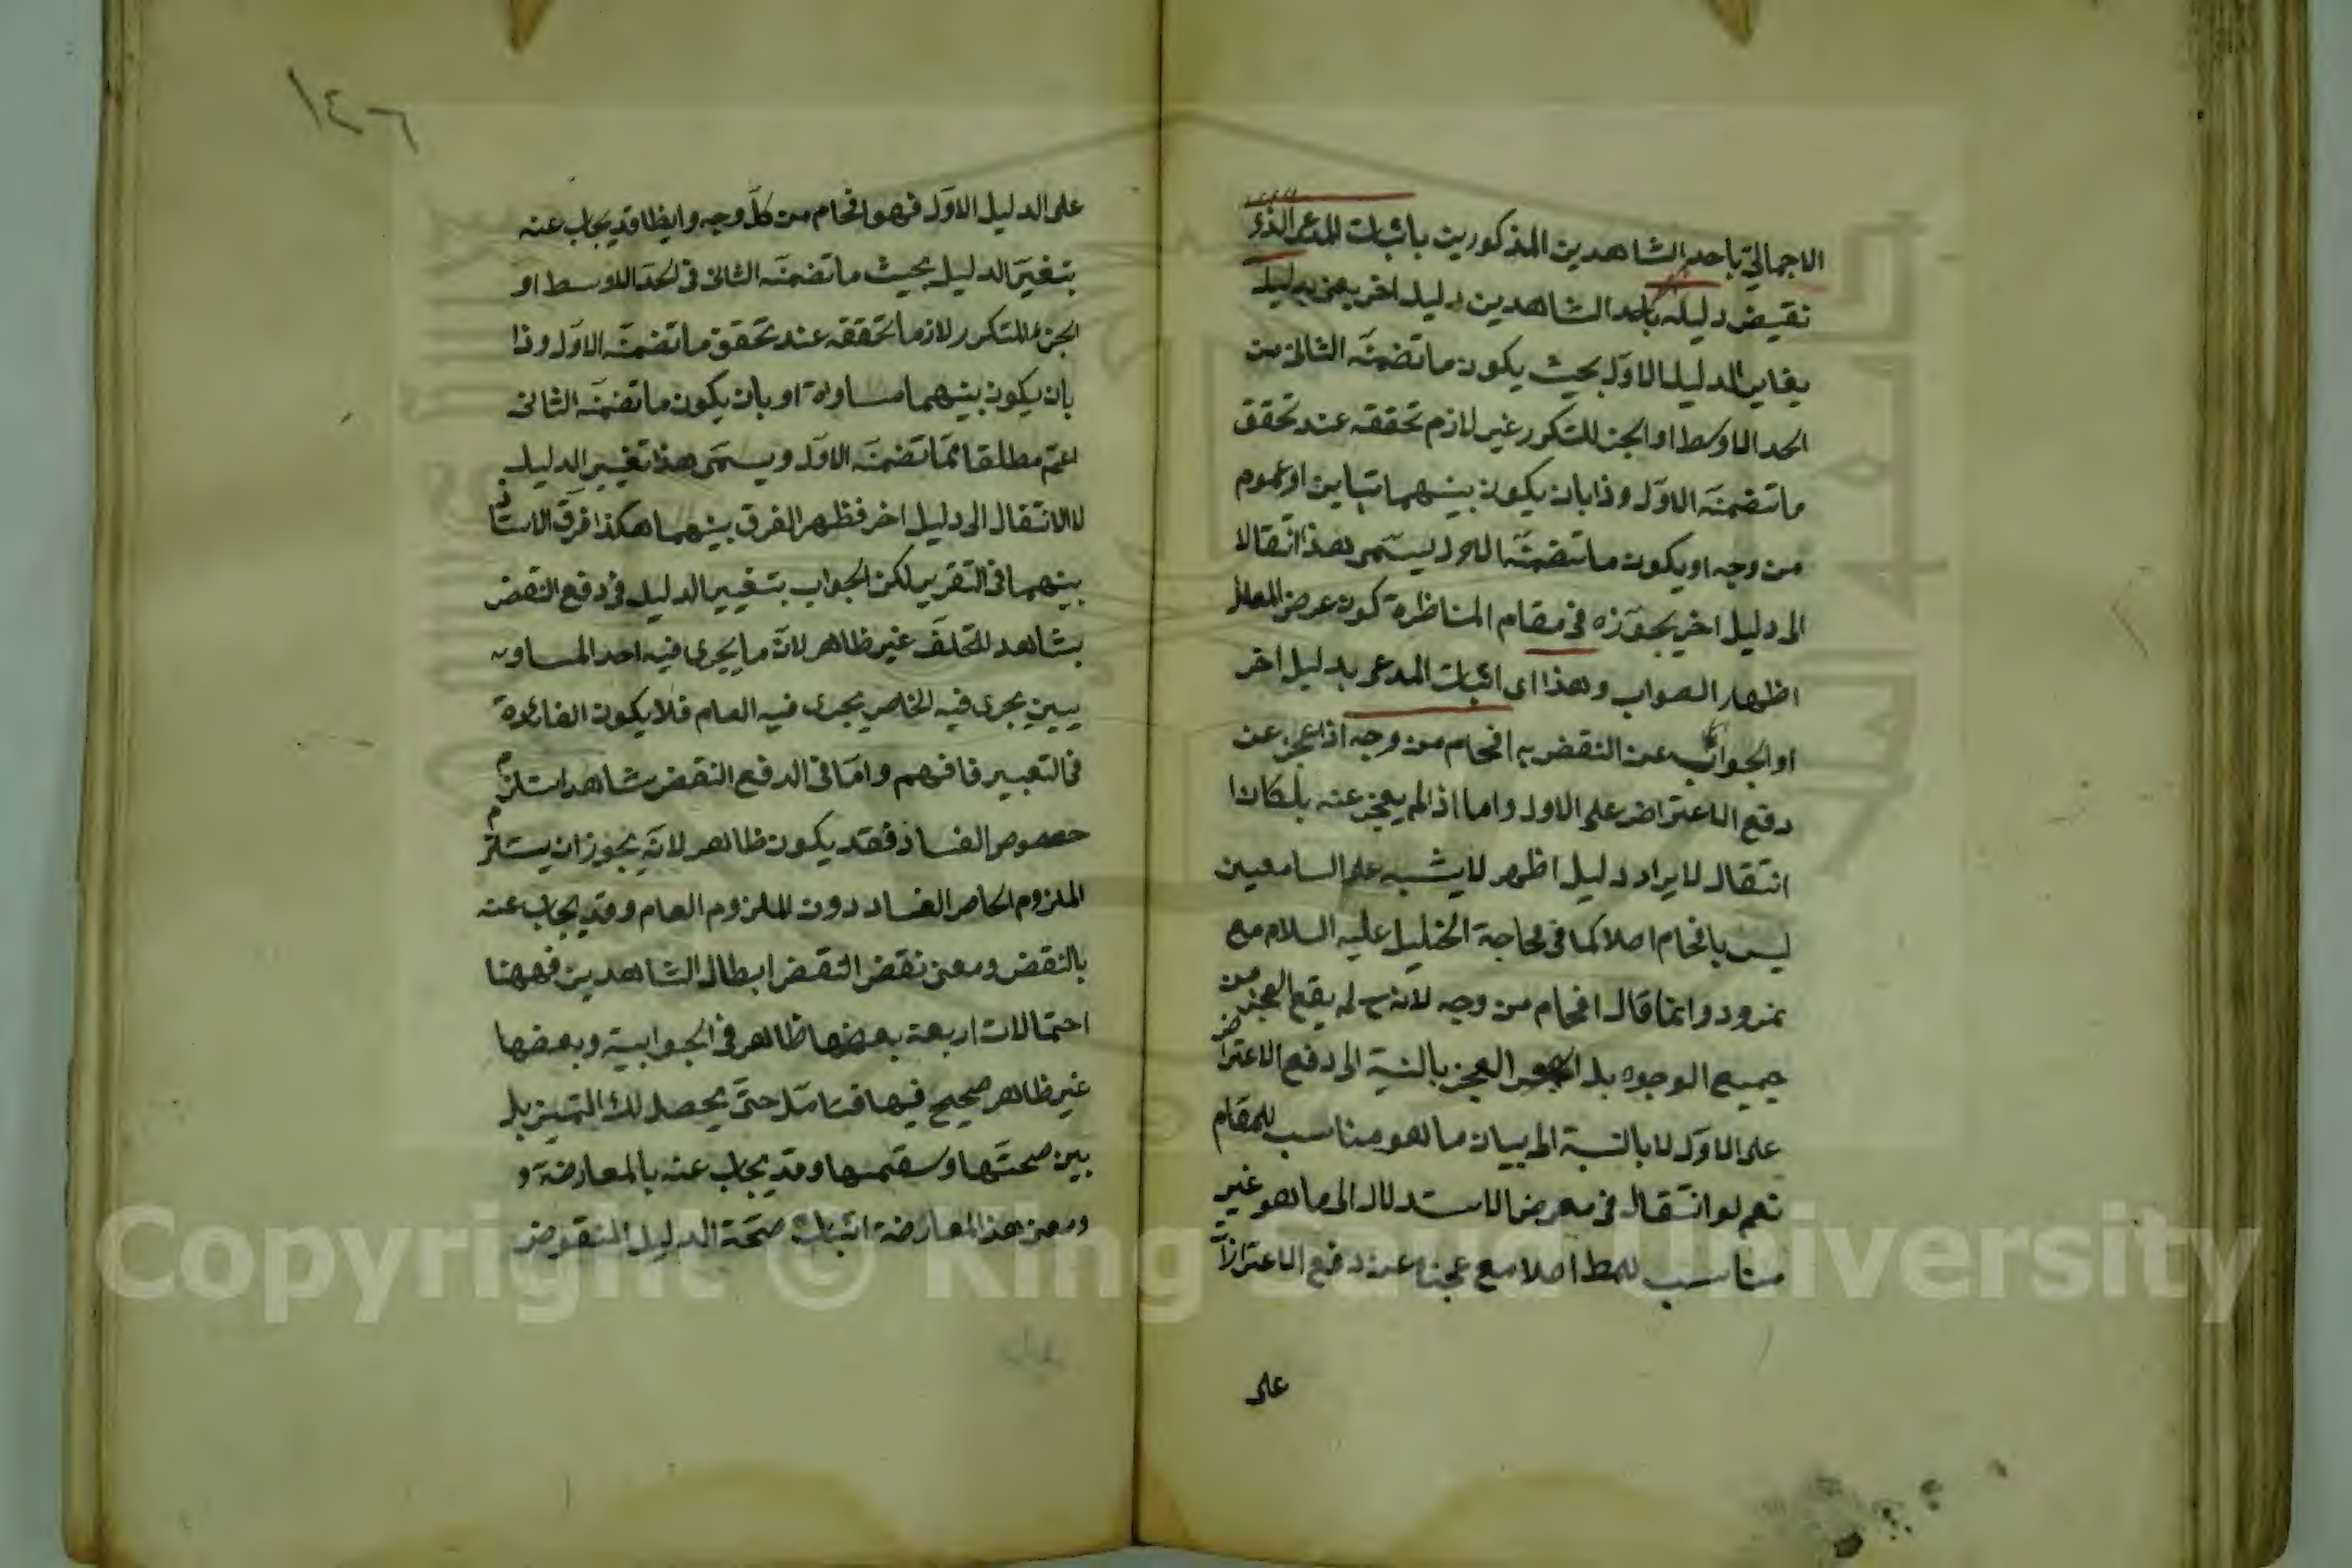 الاجمالى باحد الشاهدين المذكورين باثبات المدعى الذى
نقيض دليله باحد الشاهدين دليل اخر يعنى بدليل
يغاير الدليل الاول بحيث يكون ما تضمنه الثانى من
الحد الاوسط او الجزء المتكرر غير لازم تحققه عند تحقق
ما تضمنه الاول وذا بان يكون بينهما تباين او عموم
من وجه او يكون ما تضمنه الاول يسمى هذا انتقالا
الى دليل اخر يجوزه فى مقام المناظرة كون غرض المعلل
اظهار الصواب وهذا اى اثبات المدعى بدليل اخر
او الجواب عن النقض به افحام من وجه اذا عجز عن
دفع الاعتراض على الاول واما اذا لم يعجز عنه بل كان
انتقال لايراد دليل اظهر لا يشبه على السامعين
ليس بافحام اصلا كما فى محاجة الخليل عليه السلام مع
نمرود وانما قال افحام من وجه لانه ح لم يقع العجز من
جميع الوجوه بل العجز بالنسبة الى دفع الاعتراض
على الاول لا بالنسبة الى بيان ما هو مناسب للمقام
نعم لو انتقال فى معرض الاستدلال الى ما هو غير
مناسب للمط اصلا مع عجزه عن دفع الاعتراض
على
١٢٦
على الدليل الاول فهو افحام من كل وجه وايضا قد يجاب عنه
بتغير الدليل بحيث ما تضمنه الثانى فى الحد الاوسط او
الجزء المتكرر لازما تحققه عند تحقق ما تضمنه الاول وذا
بان يكون بينهما مساوة او بان يكون ما تضمنه الثانى
اعم مطلقا مما تضمنه الاول ويسمى هذا تغيير الدليل
لا الانتقال الى دليل اخر فظهر الفرق بينهما هكذا فرق الاستاذ
بينهما فى التقرير لكن الجواب بتغيير الدليل فى دفع النقض
بشاهد التخلف غير ظاهر لانه ما يجرى فيه احد المساويين
يجرى فيه الخاص يجرى فيه العام فلا يكون الفائدة
فى التعبير فافهم واما فى الدفع النقض بشاهد استلزم
خصوص الفساد فقد يكون ظاهر لانه يجوز ان يستلزم
الملزوم الخاص الفساد دون الملزوم العام وقد يجاب عنه
بالنقض ومعنى نقض النقض ابطال الشاهدين فههنا
احتمالات اربعة بعضها ظاهر فى الجوابية وبعضها
غير ظاهر صحيح فيها فتامل حتى يحصل لك التميز بل
بين صحتها وسقمها وقد يجاب عنه بالمعارضة و
ومعنى هذا المعارضة اثبات صحة الدليل المنقوض
Copyright © King Saud University